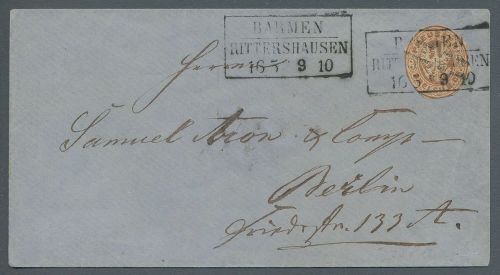 BARMEN
RITTERSHAUSEN
9 10
B
RITT SEN
9 10
Herren
Samuel Aron & Comp
Berlin
Friedrstr. 133 A.